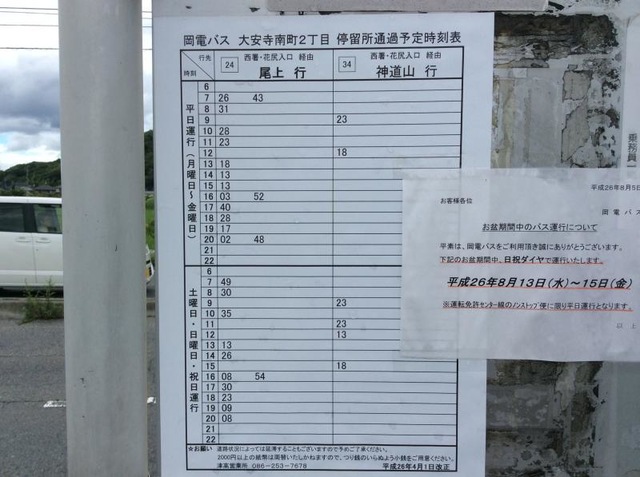 岡電バス 大安寺南町2丁目 停留所通過予定時刻表
行先 時刻
24 西署・花尻入口 経由 尾上 行
34 西署・花尻入口 経由 神道山 行
平日運行(月曜日～金曜日)
6
7 26 43
8 31
9 23
10 28
11 23
12 18
13 18
14 13
15 13
16 03 52
17 40
18 28
19 17
20 02 48
21
22
土曜日・日曜日・祝日運行
6
7 49
8 30
9 23
10 35
11 23
12 13
13 13
14 26
15 18
16 08 54
17 30
18 23
19 09
20 08
21
22
★お願い 道路状況によっては延滞することもございますので予めご了承ください。
2000円以上の紙幣は両替いたしかねますので、つり銭のいらぬよう小銭をご用意ください。
津高営業所 086-253-7678 平成26年4月1日改正
乗務員
平成26年8月5日
お客様各位
岡電バス
お盆期間中のバス運行について
平素は、岡電バスをご利用頂き誠にありがとうございます。
下記のお盆期間中、日祝ダイヤで運行いたします。
平成26年8月13日(水)～15日(金)
※運転免許センター線のノンストップ便に限り平日運行となります。
以上